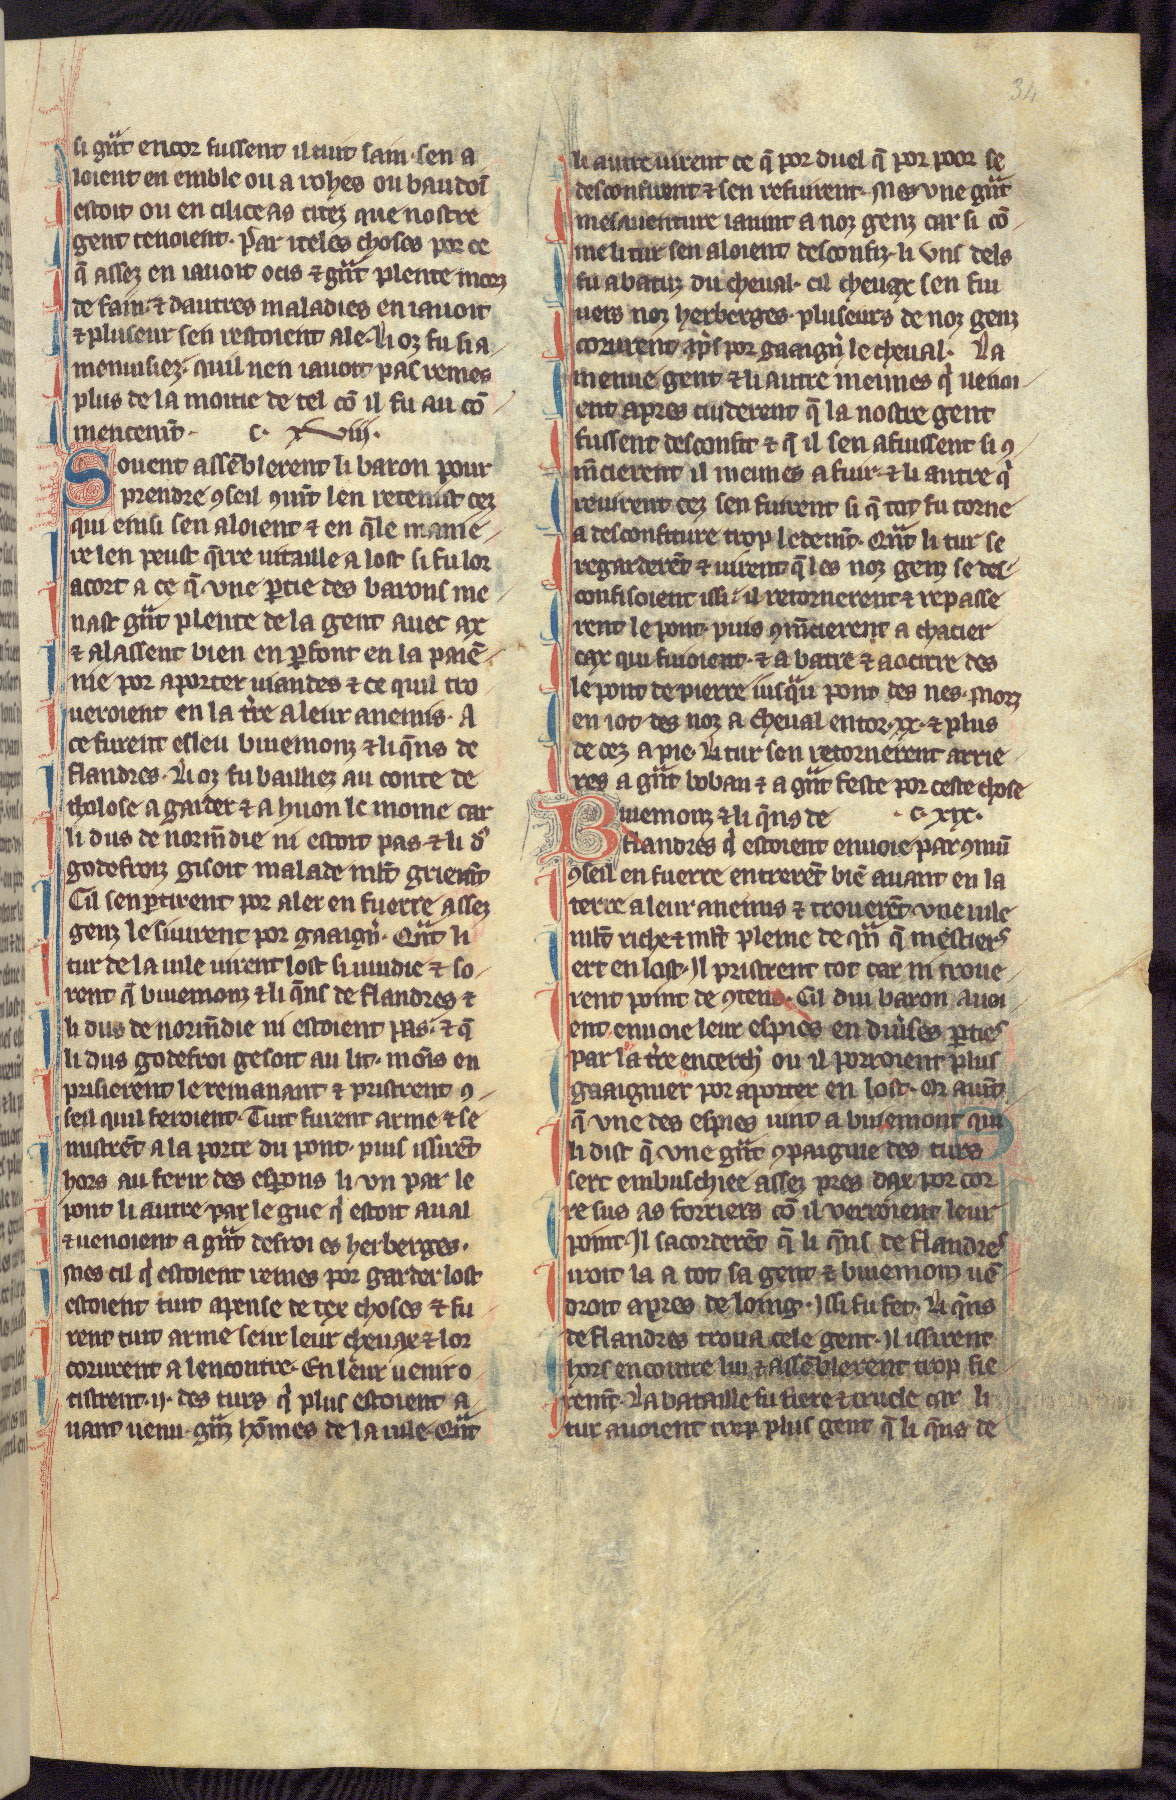 34
si gñt encor fussent il tuit sain · sen a
loient en emble ou a rohes ou baudoĩ
estoit ou en cilice as citez que nostre
gent tenoient · Par iteles choses por ce
q̃ assez en iauoit ocis ⁊ gñt plente morz
de fain · ⁊ dautres maladies en iauoit
⁊ pluseur sen restoient ale · Li oz fu si a
menuisiez · quil nen iauoit pas remes
plus de la moitie de tel cõ il fu au cõ
mencemt̃ · c · xviii ·
Souent assẽblerent li baron pour
prendre ꝯseil ꝯmt̃ len retenist cez
qui einsi sen aloient ⁊ en q̃le manie
re len peust q̃rre uitaille a lost si fu lor
acort a ce q̃ vne ꝑtie des barons me
nast gñt plente de la gent auec ax
⁊ alassent bien en ꝑfont en la paiẽ
nie por aporter uiandes ⁊ ce quil tro
ueroient en la tr̃re a leur anemis · A
ce furent esleu buiemonz ⁊ li q̃ns de
flandres · Li oz fu bailliez au conte de
tholose a garder ⁊ a huon le moine car
li dus de norm̃die ni estoit pas ⁊ li d᷒
godefroiz gisoit malade ml̃t griemt̃
Cil senꝑtirent por aler en fuerre assez
genz le siuirent por gaaigñ · Qñt li
tur de la uile uirent lost si uuidie ⁊ so
rent q̃ buiemonz ⁊ li q̃ns de flandres ⁊
li dus de norm̃die ni estoient pas · ⁊ q̃
li dus godefroi gesoit au lit · mõis en
prisierent le remanant ⁊ pristrent ꝯ
seil quil feroient · Tuit furent arme ⁊ se
mistrẽt a la porte du pont · puis issirẽt
hors au ferir des esꝑons li vn par le
pont li autre par le gue q̇ estoit aual
⁊ uenoient a gñt desroi es herberges ·
Mes cil q̇ estoient remes por garder lost
estoient tuit apense de tex choses ⁊ fu
rent tuit arme seur leur cheuax ⁊ lor
corurent a lencontre · En leur uenir o
cistrent · ii · des turs q̇ plus estoient a
uant uenu · gñz hõmes de la uile · Qñt
li autre uirent ce q̃ por duel q̃ por poor se
desconfirent ⁊ sen refuirent · Mes vne gñt
mesauenture iauint a noz genz car si cõ
me li tur sen aloient desconfiz · li vns dels
fu abatuz du cheual · cil cheuax sen fui
uers noz herberges · pluseurs de noz genz
corurent ap̃s por gaaigñ le cheual · La
menue gent ⁊ li autre meimes q̇ uenoi
ent apres cuiderent q̃ la nostre gent
fussent desconfit ⁊ q̃ il sen afuissent si ꝯ
m̃cierent il meimes a fuir · ⁊ li autre q̇
reuirent cez sen fuirent si q̃ toz fu torne
a desconfiture trop ledemt̃ · Qñt li tur se
regarderẽt ⁊ uirent q̃ les noz genz se des
confisoient issi · il retornerent ⁊ repasse
rent le pont · puis ꝯm̃cierent a chacier
cax qui fuioient · ⁊ a batre ⁊ a ocirre des
le pont de pierre iusqu pont des nes · Morz
en iot des noz a cheual entor · xx · ⁊ plus
de cez a pie · Li tur sen retornerent arrie
res a gñt boban ⁊ a gñt feste por ceste chose
Buiemonz ⁊ li q̃ns de · c · xix ·
flandres q̇ estoient enuoie par ꝯmũ
ꝯseil en fuerre entrerẽt biẽ auant en la
terre a leur anemis ⁊ trouerẽt vne uile
ml̃t riche ⁊ ml̃t pleine de q̃n q̃ mestiers
ert en lost · Il pristrent tot car ni troue
rent point de ꝯtens · Cil dui baron auoi
ent enuoie leur espies en diũses ꝑties
par la tr̃re encercħ ou il porroient plus
gaaignier por aporter en lost · Or auĩt
q̃ vne des espies uint a buiemont qui
li dist q̃ vne gñt ꝯpaignie des turs
sert embuschiee assez pres dax por cor
re sus as forriers cõ il verroient leur
point · Il sacorderẽt q̃ li q̃ns de flandres
iroit la a tot sa gent ⁊ buiemonz uẽ
droit apres de loing · Issi fu fet · Li q̃ns
de flandres troua cele gent · Il issirent
hors encontre lui ⁊ assẽblerent trop fie
remt̃ · La bataille fu fiere ⁊ cruele car li
tur auoient trop plus gent q̃ li q̃ns de